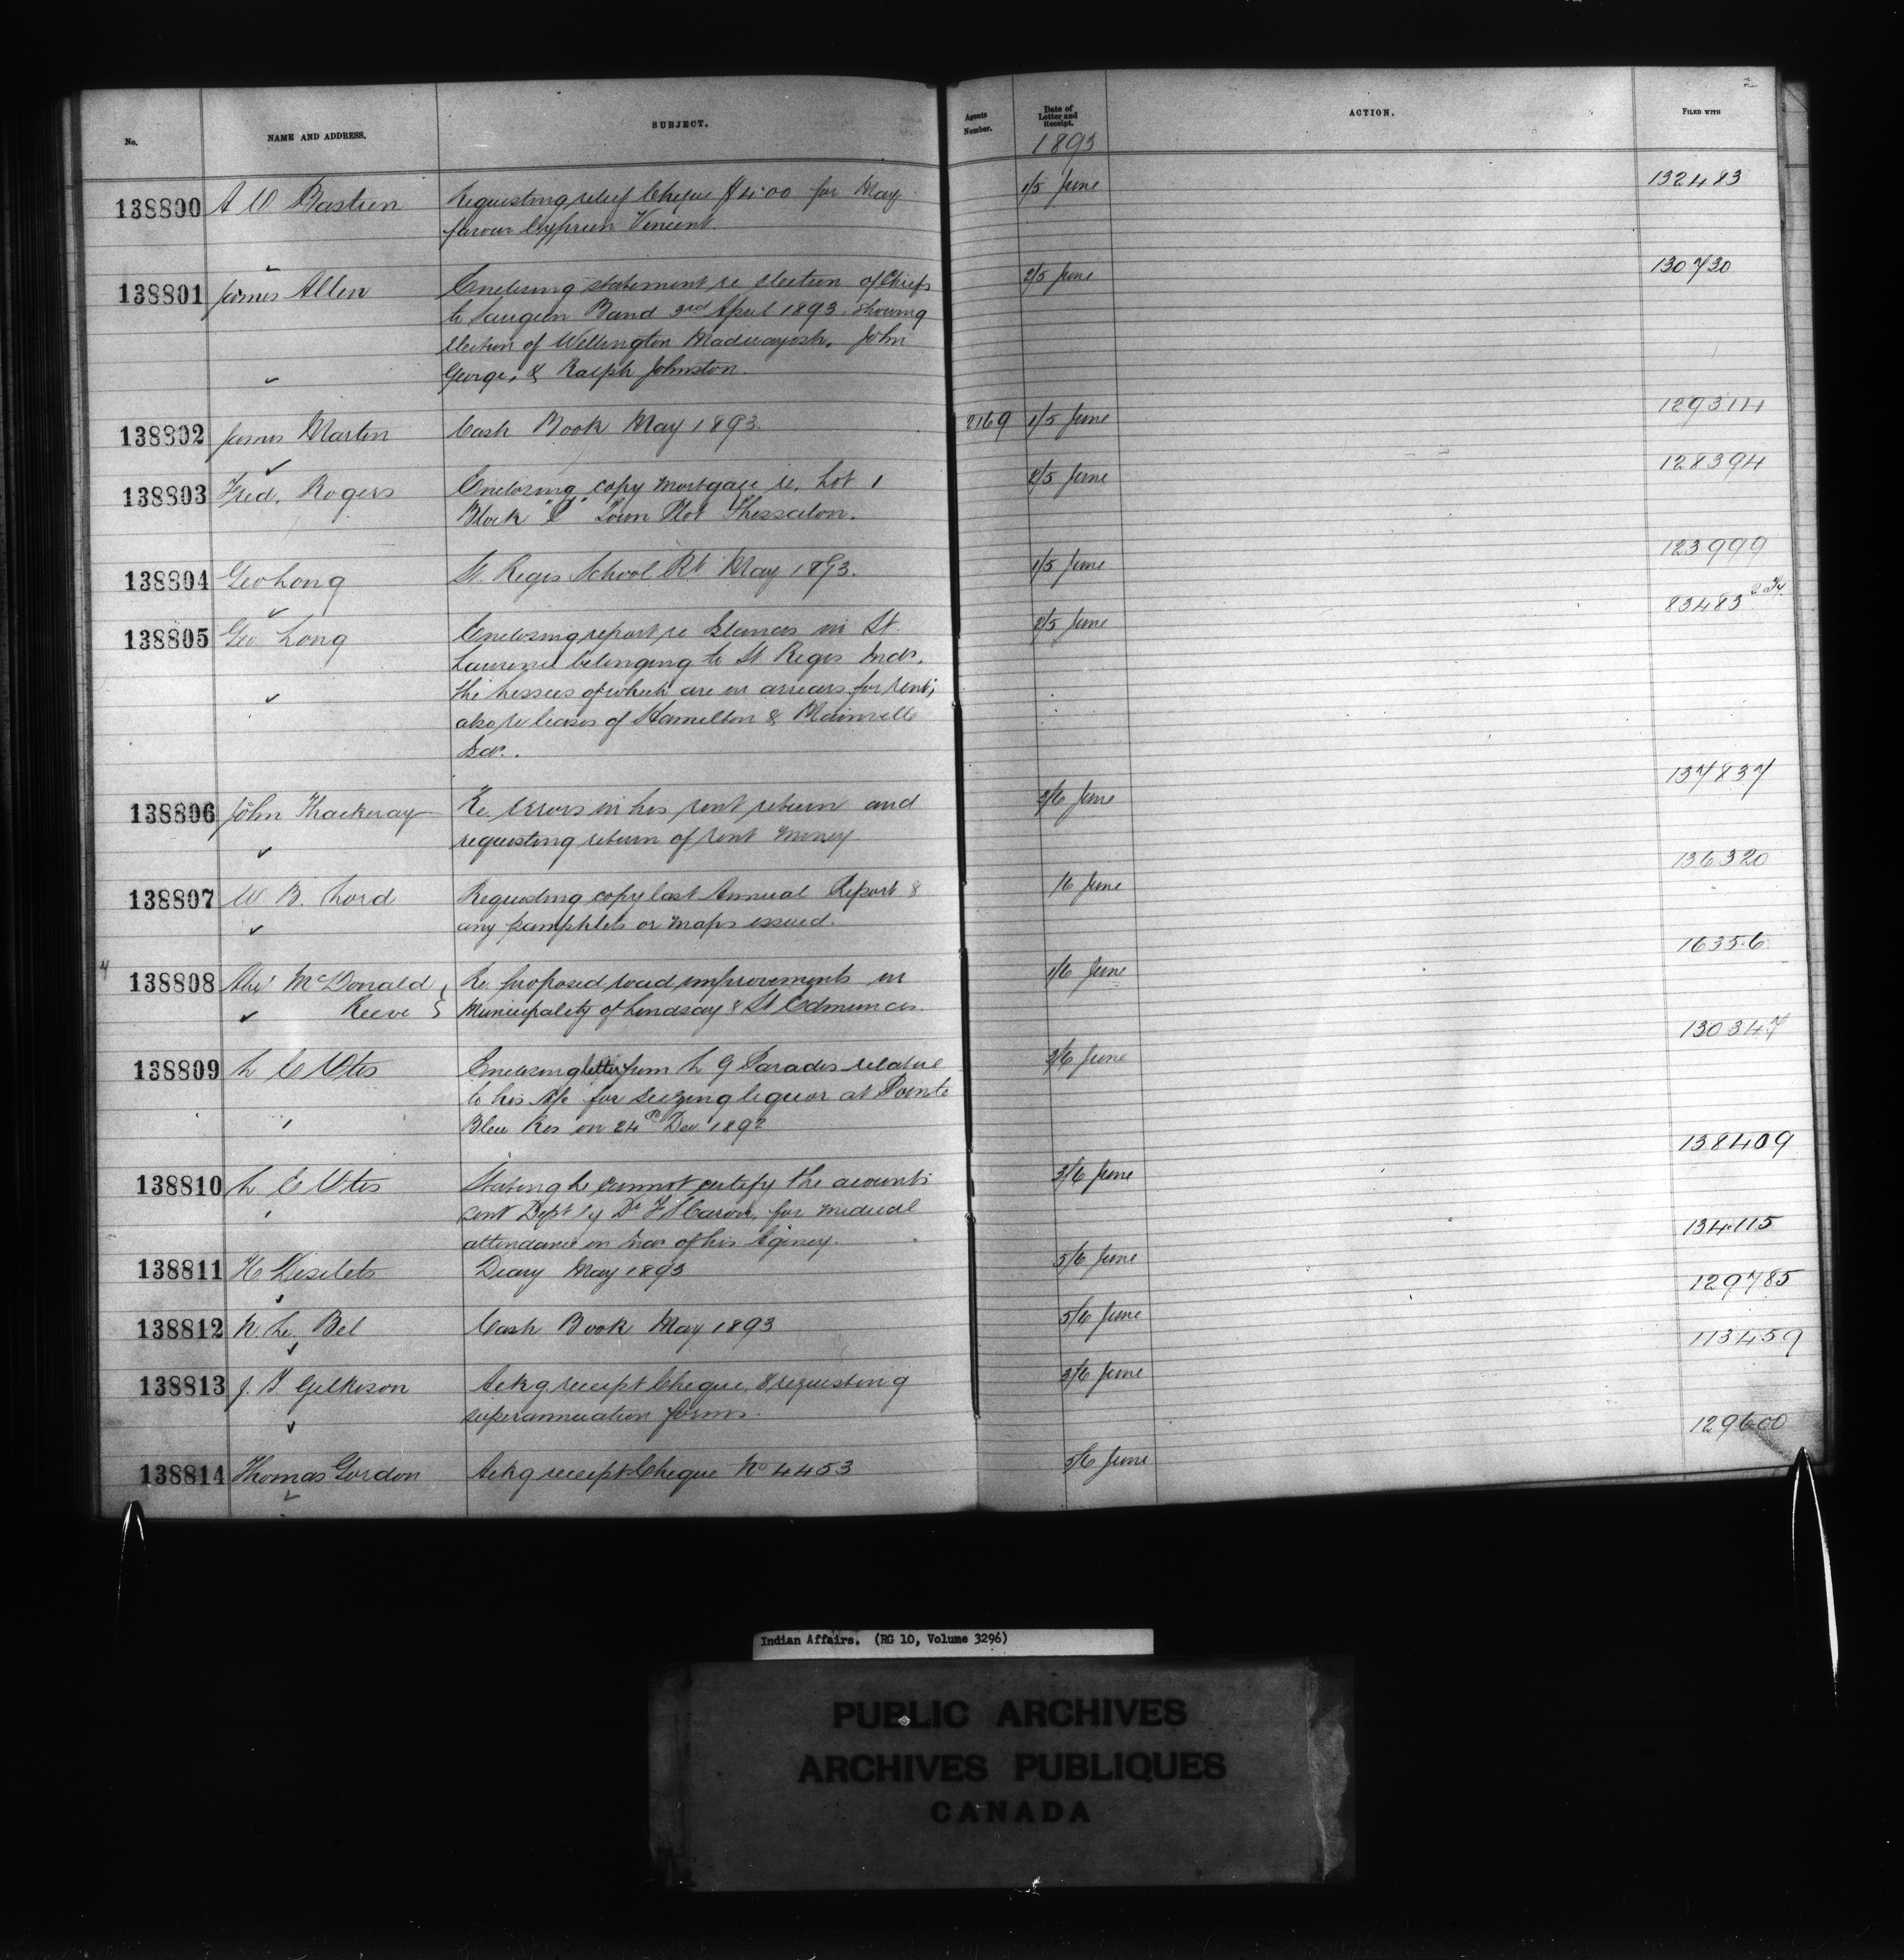 No. NAME AND ADDRESS. SUBJECT. Agents Number. Date of Letter and Receipt. ACTION. FILED WITH
1893
138800 A O Bastien Requesting relief Cheque $4.00 for May 1/5 June 132483
favour Cyprien Vincent.
138801 James Allen Enclosing statement re election of Chiefs 2/5 June 130730
to Saugeen Band 3rd April 1893. Showing
election of Wellington Madwayosh, John
George, & Ralph Johnston.
138802 James Martin Cash Book May 1893. 2169 1/5 June 129314
138803 Fred. Rogers Enclosing copy mortgage re. Lot 1 2/5 June 128394
Block "C" Town Plot Thessalon.
138804 Geo Long St. Regis School Rt. May 1893. 1/5 June 123999
138805 Geo Long Enclosing report re Islands in St. 2/5 June 83483
Lawrence belonging to St Regis Inds.
the Lessees of which are in arrears for rent;
also re leases of Hamilton & Plainville
Isds.
138806 John Thackeray Re. Errors in his rent return and 2/6 June 137837
requesting return of rent money
138807 W B. Lord Requesting copy last Annual Report & /6 June 136320
any pamphlets or maps issued.
4
138808 Alex McDonald Re. proposed road improvements in 1/6 June 16356
Reeve } Municipality of Lindsay & St Edmunds.
138809 L E Otis Enclosing letter from L G Paradis relative 3/6 June 130347
to his A/c for Seizing liquor at Pointe
Bleu Res on 24th Dec 1892
138810 L E Otis Stating he cannot certify the accounts 3/6 June 138409
sent Dept by Dr. F S Caron, for medical
attendance on Inds of his Agency.
138811 H Desilets Diary May 1893 5/6 June 134115
138812 N. Le. Bel Cash Book May 1893 5/6 June 129785
138813 J. T Gilkison Ackg receipt Cheque, & requesting 3/6 June 113459
superannuation forms.
138814 Thomas Gordon Ackg receipt Cheque No 4453 5/6 June 129600
Indian Affairs. (RG 10, Volume 3296)
PUBLIC ARCHIVES
ARCHIVES PUBLIQUES
CANADA